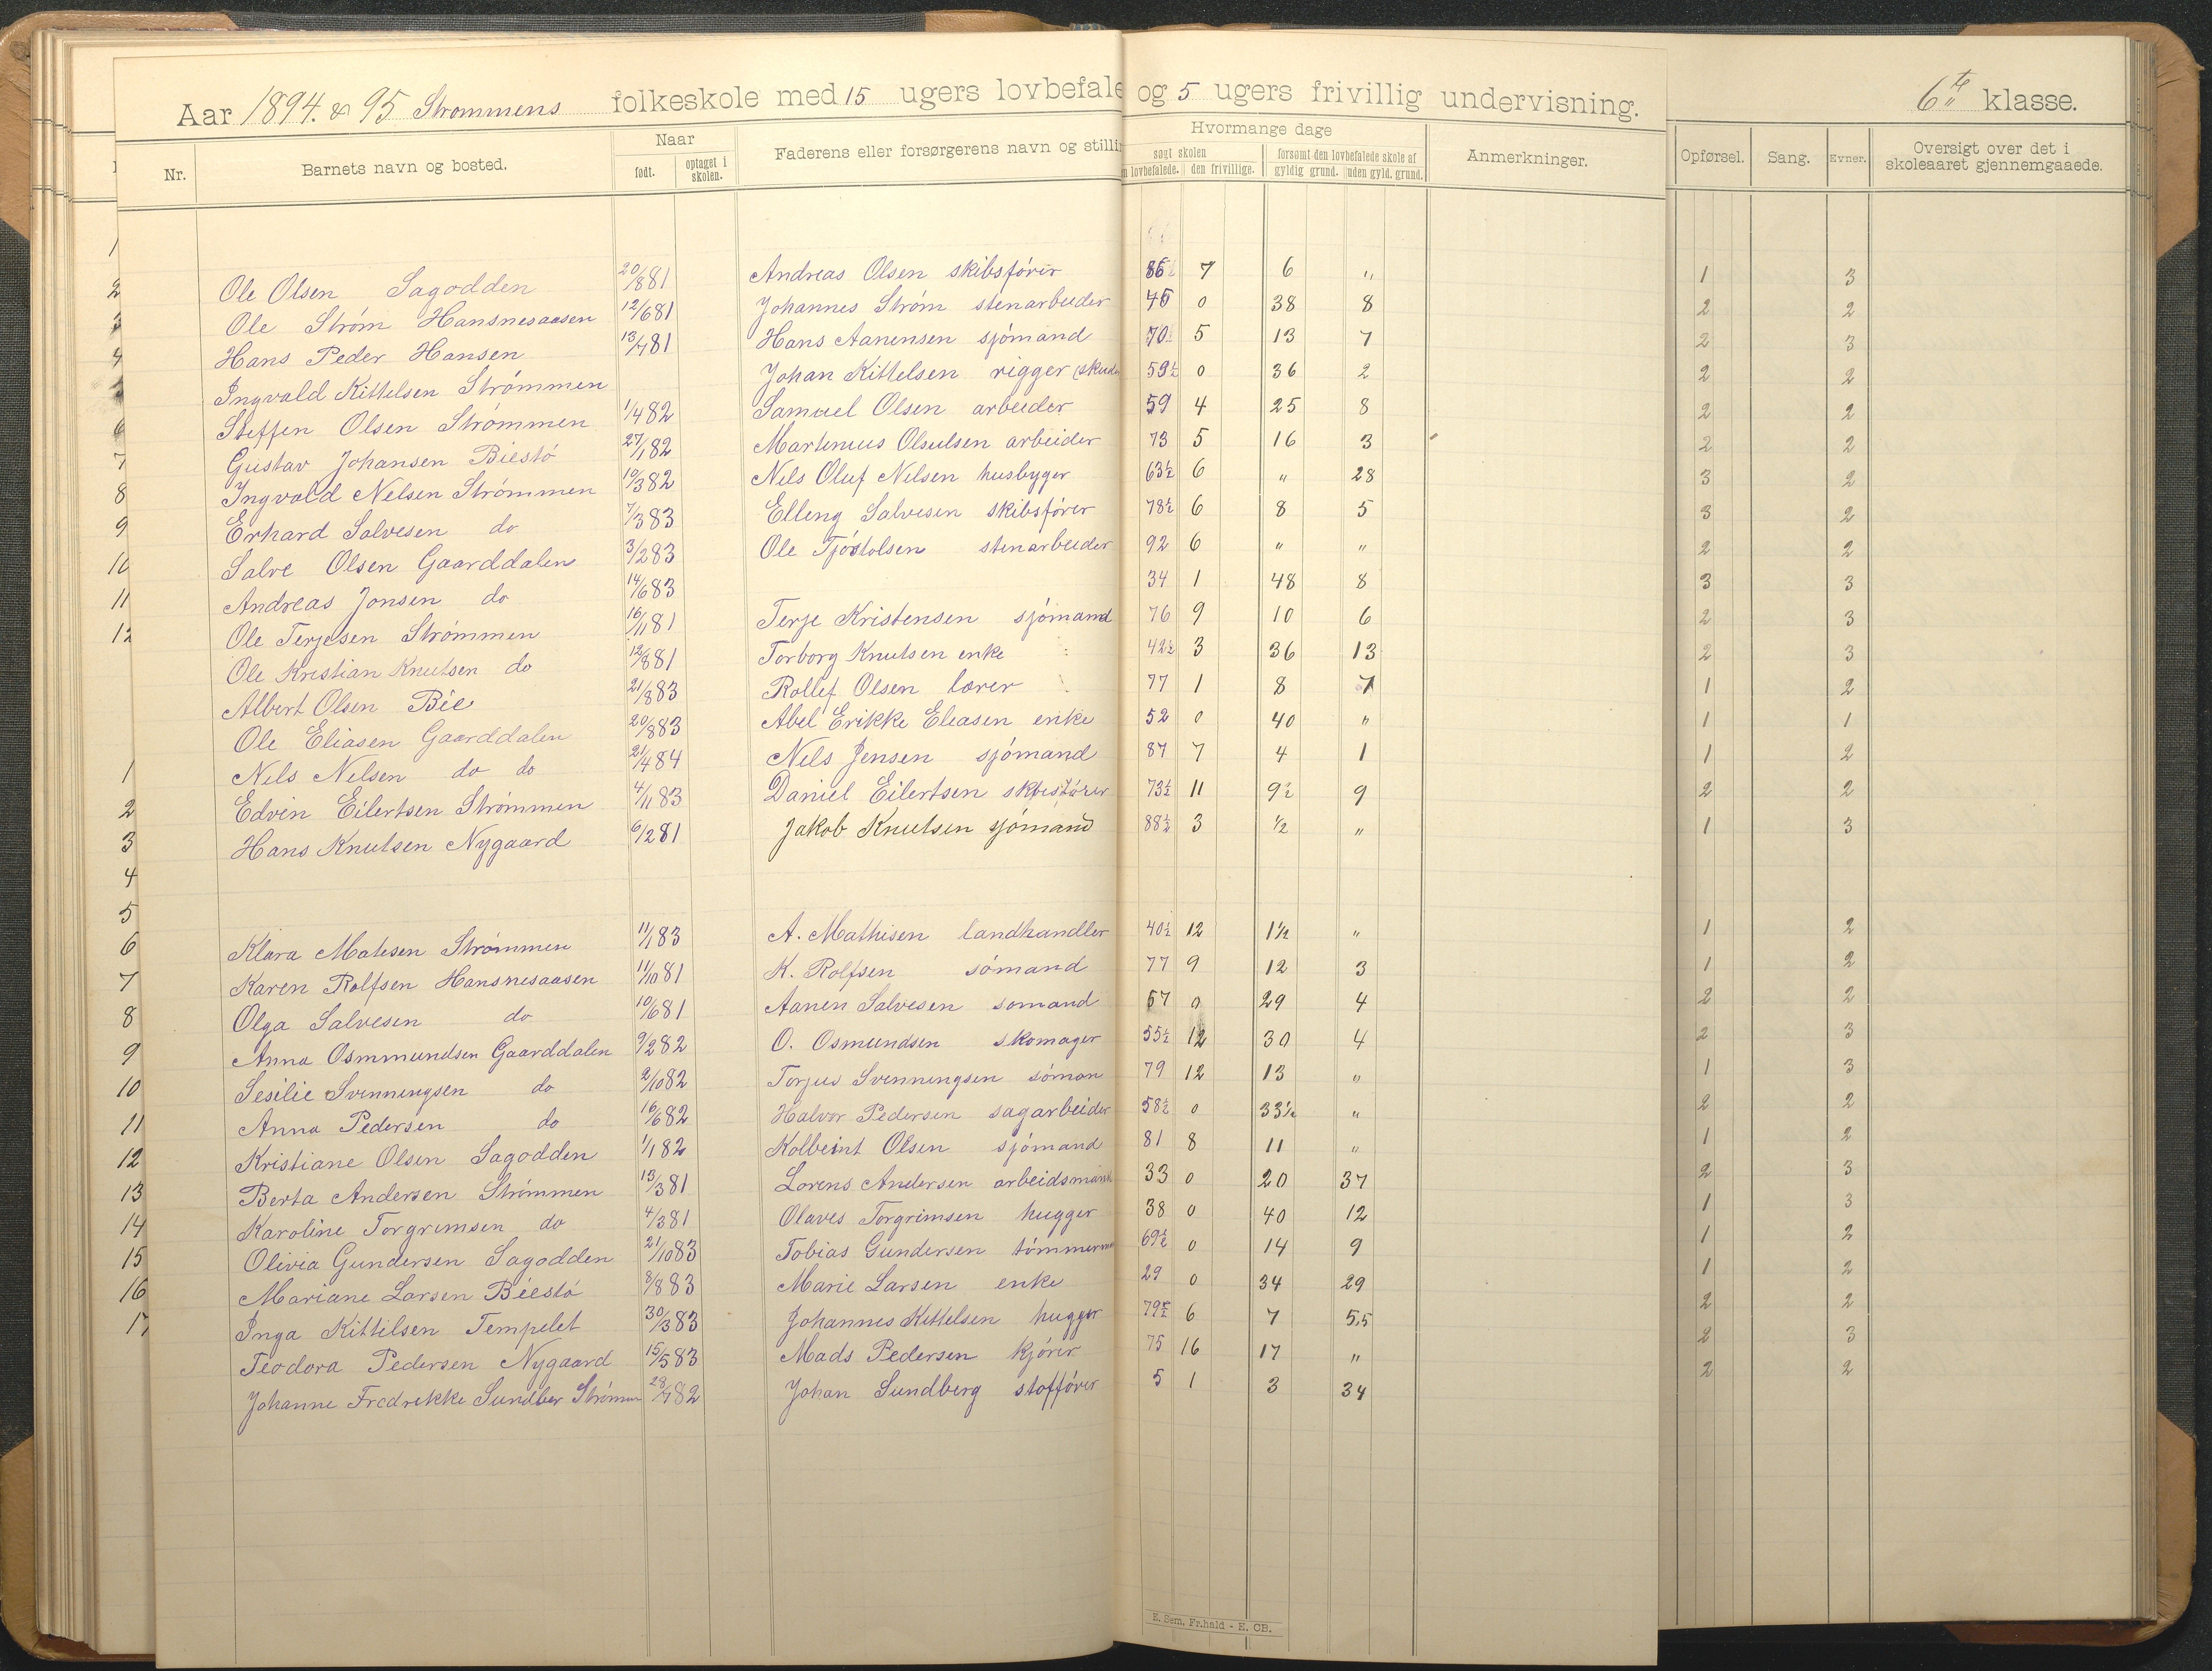 Aar 1894. & 95 Strømmens folkeskole med 15 ugers lovbefale og 5 ugers frivillig undervisning. 6te klasse.
Nr. Barnets navn og bosted. Naar født. optaget i skolen. Faderens eller forsørgerens navn og stilli Hvormange dage søgt skolen n lovbefalede. den frivillige. forsømt den lovbefalede skole af gyldig grund. uden gyld. grund. Anmerkninger. Opførsel. Sang. Evner. Oversigt over det i skoleaaret gjennemgaaede.
Ole Olsen Sagodden 20/8 81 Andreas Olsen skibsfører 86 7 6 " 1 3
Ole Strøm Hansnesaasen 12/6 81 Johannes Strøm stenarbeider 45 0 38 8 2 2
Hans Peder Hansen 13/7 81 Hans Aanensen sjømand 70 5 13 7 2 3
Ingvald Kittelsen Strømmen Johan Kittelsen rigger 59½ 0 36 2 2 2
Steffen Olsen Strømmen 1/4 82 Samuel Olsen arbeider 59 4 25 8 2 2
Gustav Johansen Biestø 27/1 82 Martinius Olsulsen arbeider 73 5 16 3 2 2
Ingvald Nelsen Strømmen 10/3 82 Nils Oluf Nilsen husbyger 63½ 6 " 28 3 2
Erhard Salvesen do 7/3 83 Elling Salvesen skibsfører 78½ 6 8 5 3 2
Salve Olsen Gaarddalen 3/2 83 Ole Tjøstolsen stenarbeider 92 6 " " 2 2
Andreas Jonsen do 14/6 83 34 1 48 8 3 3
Ole Terjesen Strømmen 16/11 81 Terje Kristensen sjømand 76 9 10 6 2 3
Ole Kristian Knutsen do 12/8 81 Torborg Knutsen enke 42½ 3 36 13 2 3
Albert Olsen Bie 21/8 83 Rollef Olsen lærer 77 1 8 7 1 2
Ole Eliasen Gaarddalen 20/8 83 Abel Erikke Eleasen enke 52 0 40 " 1 1
Nils Nilsen do do 21/4 84 Nils Jensen sjømand 87 7 4 1 1 2
Edvin Eilertsen Strømmen 4/11 83 Daniel Eilertsen skibsfører 73½ 11 9½ 9 2 2
Hans Knutsen Nygaard 6/2 81 Jakob Knutsen sjømand 88½ 3 ½ " 1 3
Klara Matesen Strømmen 11/1 83 A. Mathisen landhandler 40½ 12 1½ " 1 2
Karen Rolfsen Hansnesaasen 11/10 81 K. Rolfsen sømand 77 9 12 3 1 2
Olga Salvesen do 10/6 81 Aanen Salvesen sømand 57 0 29 4 2 2
Anna Osmmundsen Gaarddalen 9/2 82 O. Osmundsen skomager 55½ 12 30 4 2 3
Sesilie Svenningsen do 2/10 82 Torjus Svenningsen søman 79 12 13 " 1 3
Anna Pedersen do 16/6 82 Halvor Pedersen sagarbeider 58½ 0 33½ " 2 2
Kristiane Olsen Sagodden 1/1 82 Kolbeint Olsen sjømand 81 8 11 " 1 2
Berta Andersen Strømmen 13/3 81 Lorens Andersen arbeidsmand 33 0 20 37 2 3
Karoline Torgrimsen do 4/3 81 Olaves Torgrimsen hugger 38 0 40 12 1 3
Olivia Gundersen Sagodden 21/10 83 Tobias Gundersen tømmerm 69½ 0 14 9 1 2
Mariane Larsen Biestø 8/8 83 Marie Larsen enke 29 0 34 29 1 2
Inga Kittilsen Tempelet 30/3 83 Johannes Kittelsen hugger 79½ 6 7 5,5 2 2
Teodora Pedersen Nygaard 15/5 83 Mads Pedersen kjører 75 16 17 " 2 3
Johanne Fredrikke Sundber Strømm 28/7 82 Johan Sundberg stofført 5 1 3 34 2 2
2
3
4
6
7
8
9
10
11
12
1
2
3
4
5
6
7
8
9
10
11
12
13
14
15
16
17
E. Sem, Fr.hald - E. CB.